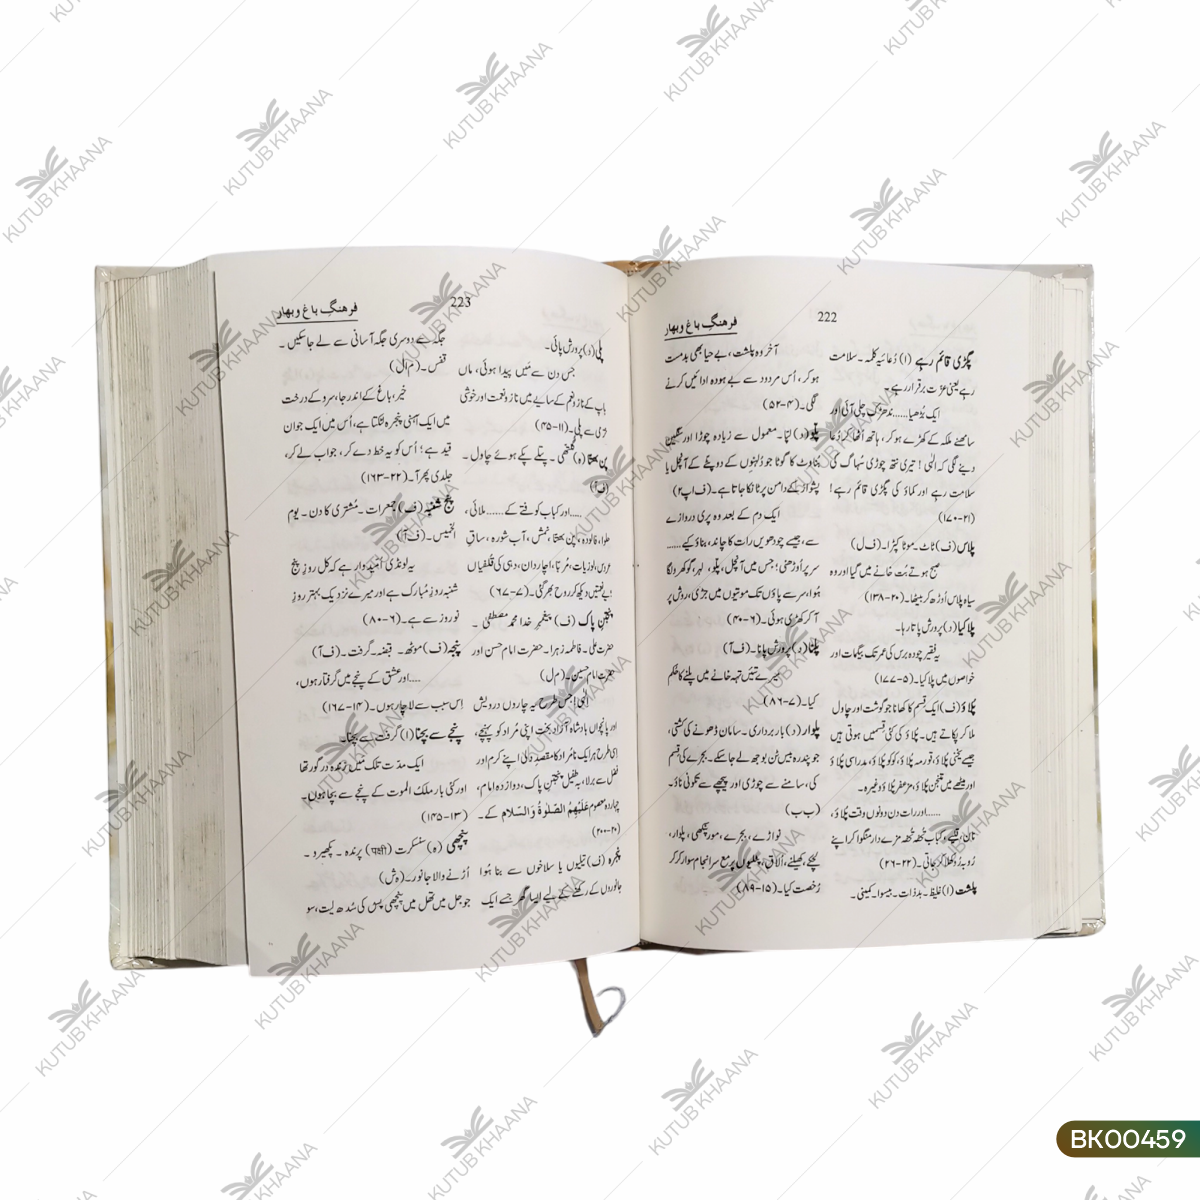 222
فرہنگِ باغ و بہار
پگڑی قائم رہے (ا) دُعائیہ کلمہ۔ سلامت
رہے یعنی عزت برقرار رہے۔
ایک بُڑھیا......ندھڑک چلی آئی اور
سامنھے ملکہ کے کھڑے ہو کر، ہاتھ اُٹھا کر دُعا
دینے لگی کہ الٰہی! تیری نتھ چوڑی سُہاگ کی
سلامت رہے اور کماؤ کی پگڑی قائم رہے!
(۲۱-۱۷۰)
پلاس (ف) ٹاٹ۔ موٹا کپڑا۔ (ف ل)
صبح ہوتے بُت خانے میں گیا اور وہ
سیاہ پلاس اُوڑھ کر بیٹھا۔ (۲۰-۱۳۸)
پلا کیا (د) پرورش پاتا رہا۔
یہ فقیر چودہ برس کی عمر تک بیگمات اور
خواصوں میں پلا کیا۔ (۵-۱۷۷)
پُلاؤ (ف) ایک قسم کا کھانا جو گوشت اور چاول
ملا کر پکاتے ہیں۔ پلاؤ کی کئی قسمیں ہوتی ہیں
جیسے یخنی پُلاؤ، قورمہ پُلاؤ، کوکو پلاؤ، مدراسی پُلاؤ
اور میٹھے میں متنجن پُلاؤ، مزعفر پُلاؤ وغیرہ۔
......اور رات دن دونوں وقت پُلاؤ،
نان، قلیے و کباب تحفہ تحفہ مزے دار منگوا کر اپنے
رُوبہ رُو کھلا کر جاتی۔ (۲۲-۲۶)
پلشت (ا) غلیظ۔ بدذات۔ بیسوا۔ کمینی۔
آخر وہ پلشت، بے حیا بھی بدمست
ہو کر، اُس مردود سے بے ہودہ ادائیں کرنے
لگی۔ (۴-۵۲)
پلّو (د) لپّا۔ معمول سے زیادہ چوڑا اور سنگین
بناوٹ کا گوٹا جو دُلہنوں کے دوپٹے کے آنچل یا
پشواز کے دامن پر ٹانکا جاتا ہے۔ (ف اپ ۲)
ایک دم کے بعد وہ پری دروازے
سے، جیسے چودھویں رات کا چاند، بناؤ کیے......
سر پر اُوڑھنی؛ جس میں آنچل، پلّو، لہر گوکھرو لگا
ہُوا، سر سے پاؤں تک موتیوں میں جڑی، روش پر
آ کر کھڑی ہوئی۔ (۶-۴۰)
پلنا (د) پرورش پانا۔ (ف آ)
میرے تئیں تہہ خانے میں پلنے کا حکم
کیا۔ (۷-۸۶)
پلوار (د) باربرداری۔ سامان ڈھونے کی کشتی،
جو پندرہ بیس ٹن بوجھ لے جاسکے۔ بجرے کی قسم
کی، سامنے سے چوڑی اور پیچھے سے تکونی ناؤ۔
(ب ب)
نواڑے، بجرے، مورپنکھی، پلوار،
لچکے، کھیلنے، اُلاق، پٹیلیوں پر مع سرانجام سوار کر کر
رُخصت کیا۔ (۱۵-۸۹)
223
فرہنگِ باغ و بہار
پلی (د) پرورش پائی۔
جس دن سے مَیں پیدا ہوئی، ماں
باپ کے ناز و نعم کے سایے میں ناز و نعمت اور خوشی
خرّمی سے پلی۔ (۱۱-۴۵)
پن بھتّا (ہ) گلتھی۔ پتلے پکے ہوئے چاول۔
(ف آ)
......اور کباب کوفتے کے......ملائی،
حلوا، فالودہ، پن بھتّا، نمش، آب شورہ، ساقِ
عروس، لوزیات، مُربّا، اچاردان، دہی کی قلفیاں
یہ نعمتیں دیکھ کر روح بھر گئی۔ (۷-۶۷)
پنجتنِ پاک (ف) پیغمبرِ خدا محمد مصطفیٰ۔
حضرت علی۔ فاطمہ زہرا۔ حضرت امام حسن اور
حضرت امام حسین۔ (م ل)
اِلٰہی! جس طرح یہ چاروں درویش
اور پانچواں بادشاہ آزاد بخت اپنی مُراد کو پہنچے،
اِسی طرح ہر ایک نامراد کا مقصدِ دلی اپنے کرم اور
فضل سے برلا، بہ طفیل پنجتنِ پاک، دوازدہ امام،
چہاردہ معصوم عَلَیْہِمُ الصَّلٰوۃُ وَالسَّلَام کے۔
(۲۰-۲۰۰)
پنجرہ (ف) تیلیوں یا سلاخوں سے بنا ہُوا
جانوروں کے رکھنے کے لیے ایسا گھر جسے ایک
جگہ سے دوسری جگہ آسانی سے لے جاسکیں۔
قفس۔ (م ال)
خیر، باغ کے اندر جا، سرو کے درخت
میں ایک آہنی پنجرہ لٹکتا ہے، اُس میں ایک جوان
قید ہے؛ اُس کو یہ خط دے کر، جواب لے کر،
جلدی پھر آ۔ (۲۲-۱۶۳)
پنج شنبہ (ف) جمعرات۔ مُشتری کا دن۔ یوم
الخمیس۔ (ف آ)
یہ لونڈی اُمیدوار ہے کہ کل روزِ پنج
شنبہ روزِ مُبارک ہے اور میرے نزدیک بہتر روزِ
نوروز سے ہے۔ (۶-۸۰)
پنجہ (ف) موٹھ۔ قبضہ۔ گرفت۔ (ف آ)
....اور عشق کے پنجے میں گرفتار ہوں،
اِس سبب سے لاچار ہوں۔ (۱۴-۱۶۷)
پنجے سے بچنا (ا) گرفت سے بچنا۔
ایک مدّت تک مَیں زندہ درگور تھا
اور کئی بار ملک الموت کے پنجے سے بچا ہوں۔
(۱۳-۱۴۵)
پنچھی (ہ) سنسکرت (पक्षी) پرندہ۔ پکھیرو۔
اُڑنے والا جانور۔ (ہ ش)
جو جل میں تھل میں پنچھی پس کی سُدھ لیت، سو
BK00459
KUTUB KHAANA